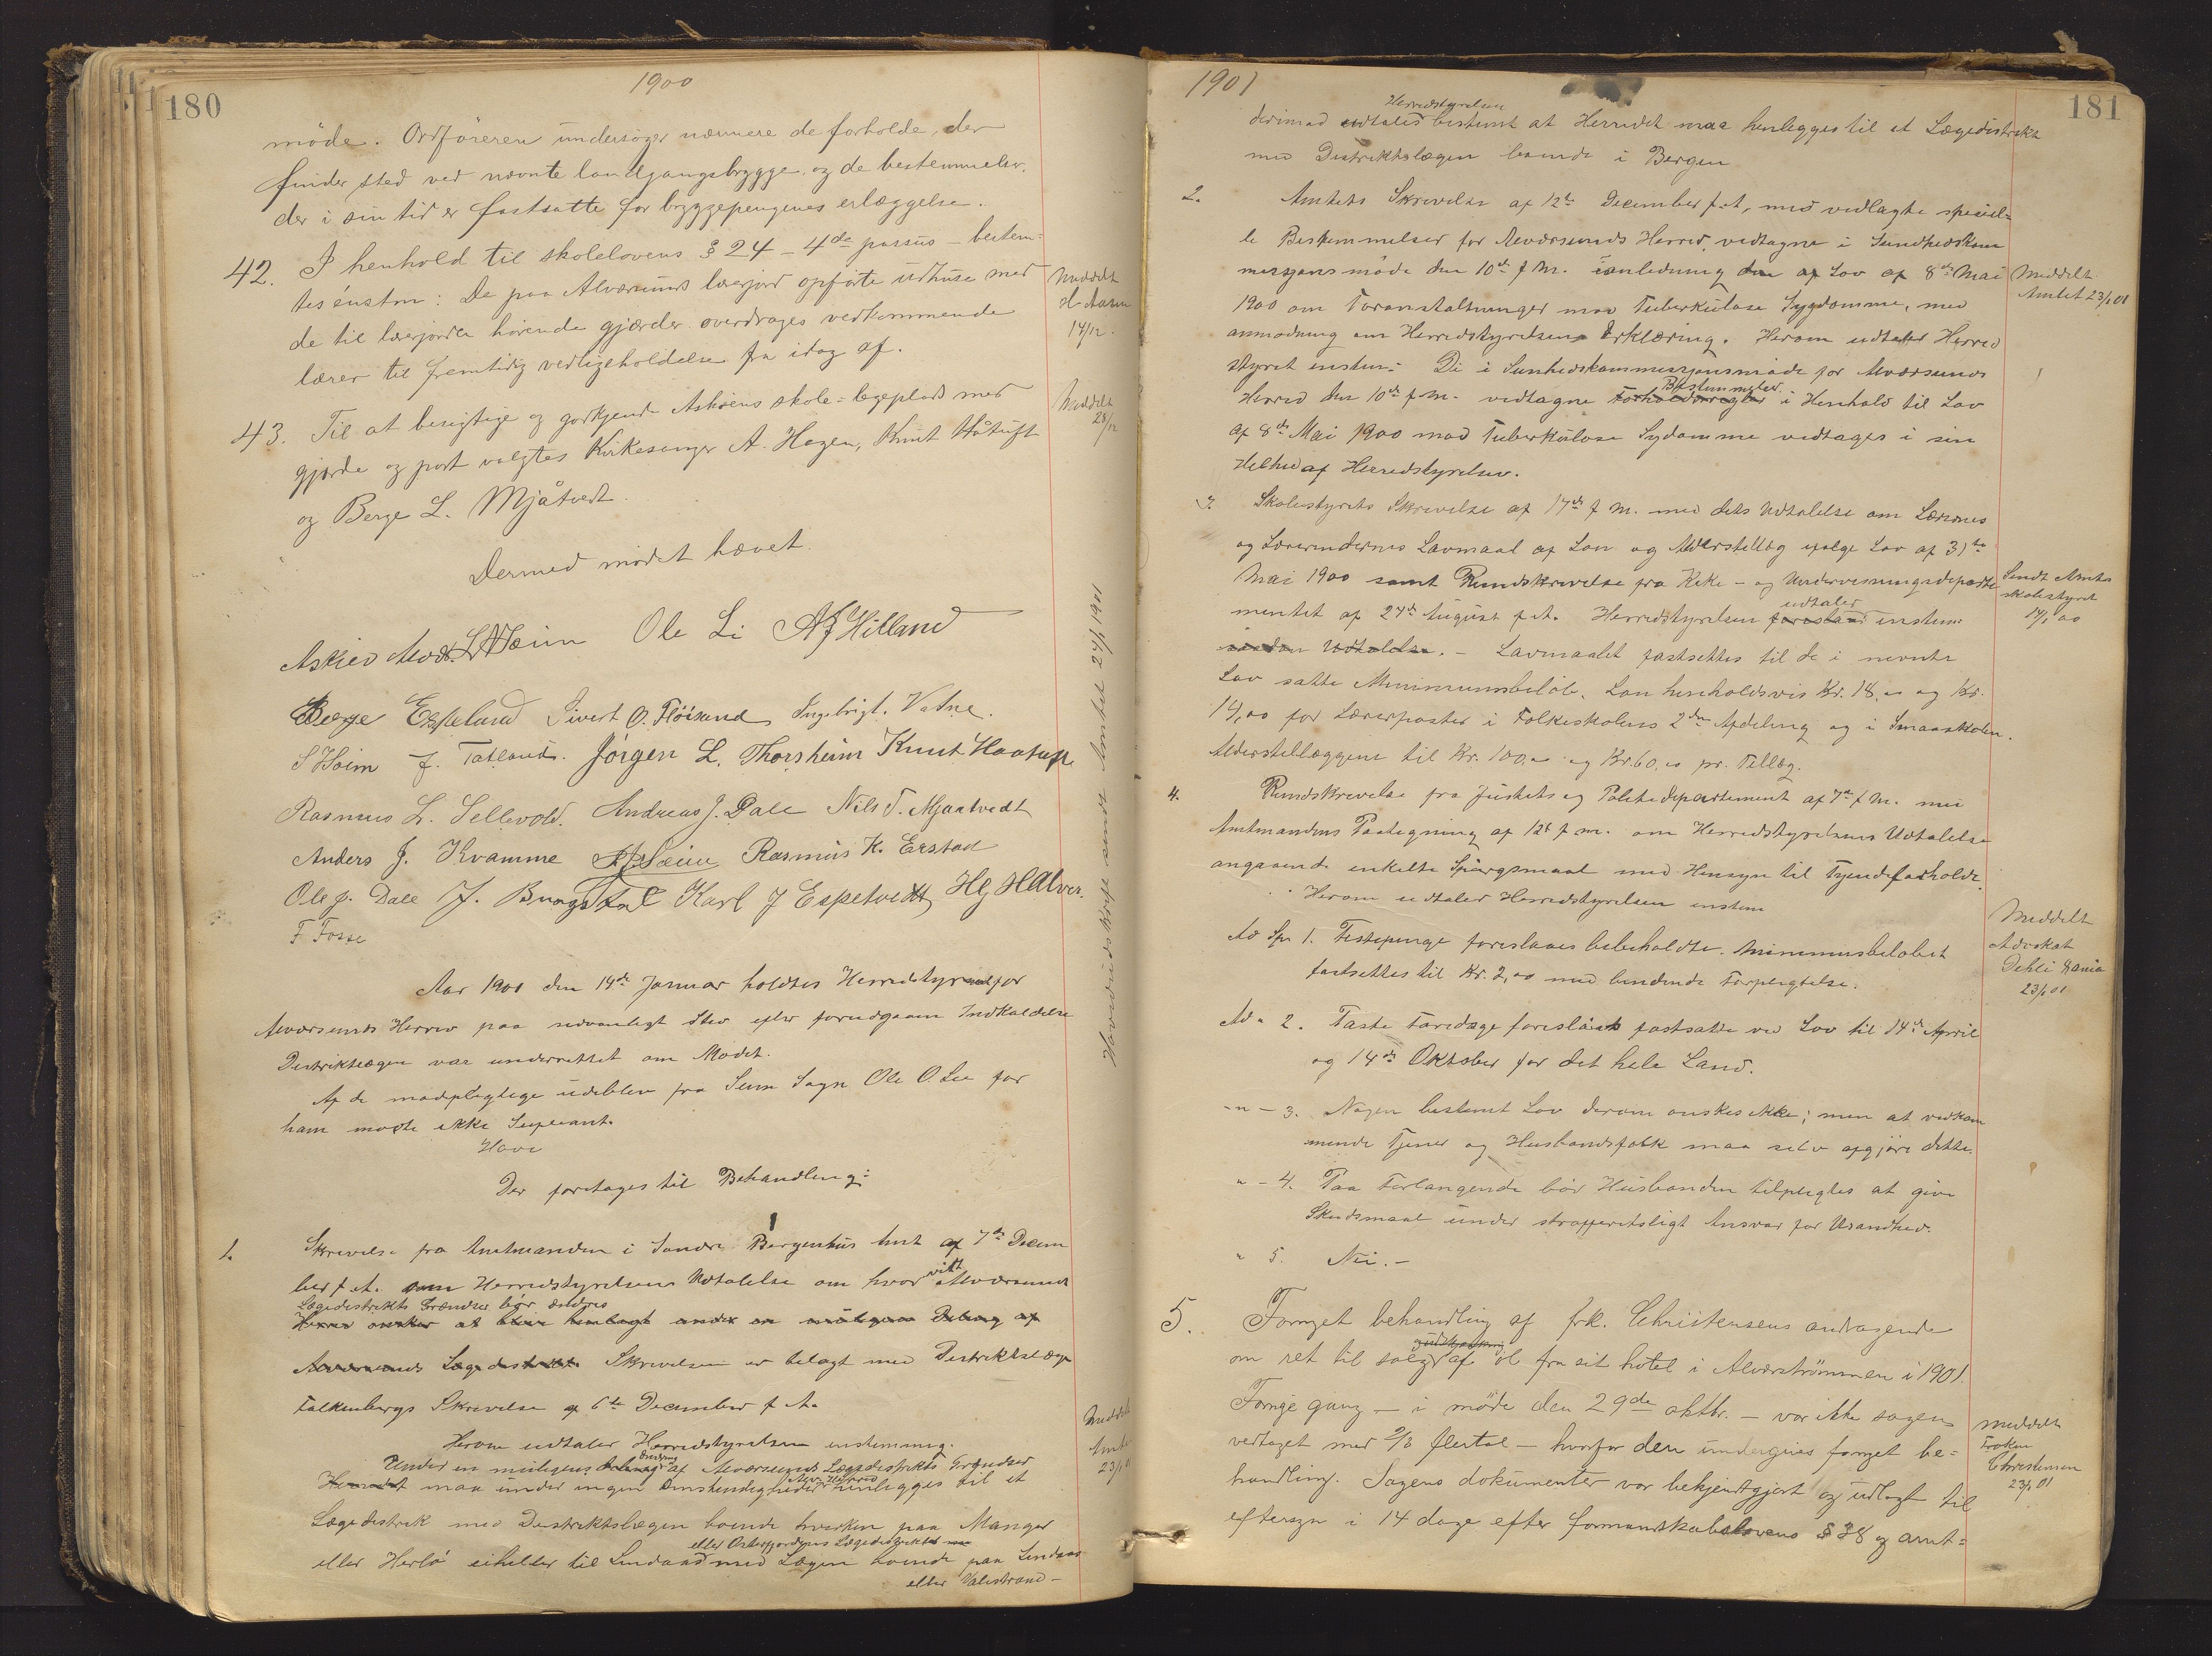 180
1900
møde. Ordføreren undersøger nærmere de forholde, der
finder sted ved nævnte landgangsbrygge og de bestemmelser,
der i sin tid er fastsatte for bryggepengenes erlæggelse.
42. I henhold til skolelovens § 24 - 4de passus - bestem-
tes énstm: De paa Alværsunds lærerjord opførte udhuse med
de til lærerjorden hørende gjærder overdrages vedkommende
lærer til fremtidig vedligeholdelse fra idag af.
Meddelt
14/12.
43. Til at besigtige og godkjende Askøens skole-legeplads med
gjærde og port valgtes Kirkesanger A. Hagen, Knut Håtuft
og Berge L. Mjåtvedt.
Meddelt
28/12
Dermed mødet hævet.
Ole Li AJ Hilland
Berge Espelund Sivert O. Fløisand Ingebrigt. Vatne.
S Hoim J. Tatland. Jørgen L. Thorsheim Knut Haatuft
Rasmus L. Sellevold. Andreas J. Dale Nils T. Mjaatvedt
Anders J. Kvamme Rasmus K. Eustad
Ole J. Dale J. Bragstad Karl J Espetvedt HG HAlver.
F Fosse
Aar 1901 den 14de Januar holdtes Herredstyremøde for
Alværsunds Herred paa sedvanligt Sted efter forudgaaen Indkaldelse
Distriktslægen var underrettet om Mødet.
Af de mødpligtige udeblev fra Seim Sogn Ole O. Lee for
ham mødte ikke Supleant.
Hove
Der foretages til Behandling:
1. Skrivelse fra Amtmanden i Søndre Bergenhus Amt af 7de Decem
ber f. A. om Herredstyrelsens Udtalelse om hvorvidt Alværsunds
Lægedistrikts Grændser bør ændres
Herred ønsker at blive henlagt under en mulig Deling af
Alværsunds Lægedistrikt. Skrivelsen er bilagt med Distriktslæge
Falkenbergs Skrivelse af 6te December f. A.
Herom udtaler Herredstyrelsen enstemmig.
Under en muligens Deling Endring af Alværsunds Lægedistrikts Grændser
Herredet maa under ingen Omstendigheder Alv. Herred henlegges til et
Lægedistrik med Distriktslægen boende hverken paa Manger
eller Osterfjordens Lægedistrikt
eller Herlø eiheller til Lindaas med Lægen boende paa Lindaas
eller Valestrand -
Meddelt
Amtet
23/1 01
Hovedudskrift sendt Amtet 24/1 1901
1901
181
derimod udtaler Herredstyrelsen bestemt at Herredet maa henlegges til et Lægedistrikt
med Distriktslægen boende i Bergen
2. Amtets Skrivelse af 12te December f. A., med vedlagte speciel-
le Bestemmelser for Alværsunds Herred, vedtagne i Sundhedskom
missjons møde den 10de f. M. i anledning den af Lov af 8de Mai
1900 om Foranstaltninger mod Tuberkuløse Sygdomme, med
anmodning om Herredstyrelsens Erklæring. Herom udtaler Herred
styret enstem: De i Sunhedskommissjonsmøde for Alværsunds
Herred den 10de f. M. vedtagne Forholdsregler Bestemmelser i Henhold til Lov
af 8de Mai 1900 mod Tuberkuløse Sydomme vedtages i sin
Helhed af Herredstyrelsen.
Meddelt
Amtet 23/1 01
3. Skolestyrets Skrivelse af 17de f. M. med dets Udtalelse om Lærernes
og Lærerindernes Lavmaal af Løn og Alderstillæg ifølge Lov af 31te
Mai 1900 samt Rundskrivelse fra Kirke- og Undervisningsdeparte
mentet af 27de August f. A. Herredstyrelsen foreslaar udtaler enstem:
Udtalelse. - Lavmaalet fastsettes til de i nevnte
Lov satte Minimumsbeløb. Løn henholdsvis Kr. 18,00 og Kr.
14,00 for Lærerposter i Folkeskolens 2den Afdeling og i Smaaskolen.
Alderstillæggene til Kr. 100,00 og Kr. 60,00 pr. Tillæg.
Sendt Amts
skolestyret
4. Rundskrivelse fra Justits og Politidepartement af 7de f. M. med
Amtmandens Paategning af 12t f. m. om Herredstyrelsens Udtalelse
angaaende enkelte Spørgsmaal med Hensyn til Tyendeforholde.
Herom udtaler Herredstyrelsen enstem
Ad Sp 1. Festepenge foreslaaes bibeholdte. Minimumsbeløbet
fastsettes til Kr. 2,00 med bindende Forpligtelse.
Meddelt
Advokat
23/1 01
Ad " 2. Faste Faredage foreslaaes fastsatte ved Lov til 14de April
og 14de Oktober for det hele Land.
" - 3. Nogen bestemt Lov derom ønskes ikke; men at vedkom
mende Tjener og Husbondsfolk maa selv afgjøre dette.
" - 4. Paa Forlangende bør Husbonden tilpligtes at give
Skudsmaal under strafferetsligt Ansvar for Usandhed.
" 5. Nei. -
5. Fornyet behandling af frk. Christensens andragende
om ret til salg udskjænkning af øl fra sit hotel i Alverstrømmen i 1901.
Forrige gang - i møde den 29de oktbr. - var ikke sagen
vedtaget med 2/3 flertal - hvorfor den undergives fornyet be-
handling. Sagens dokumenter var bekjendtgjort og udlagt til
eftersyn i 14 dage efter formandskabslovens § 38 og amt-
Meddelt
Frøken
Christensen
23/1 01